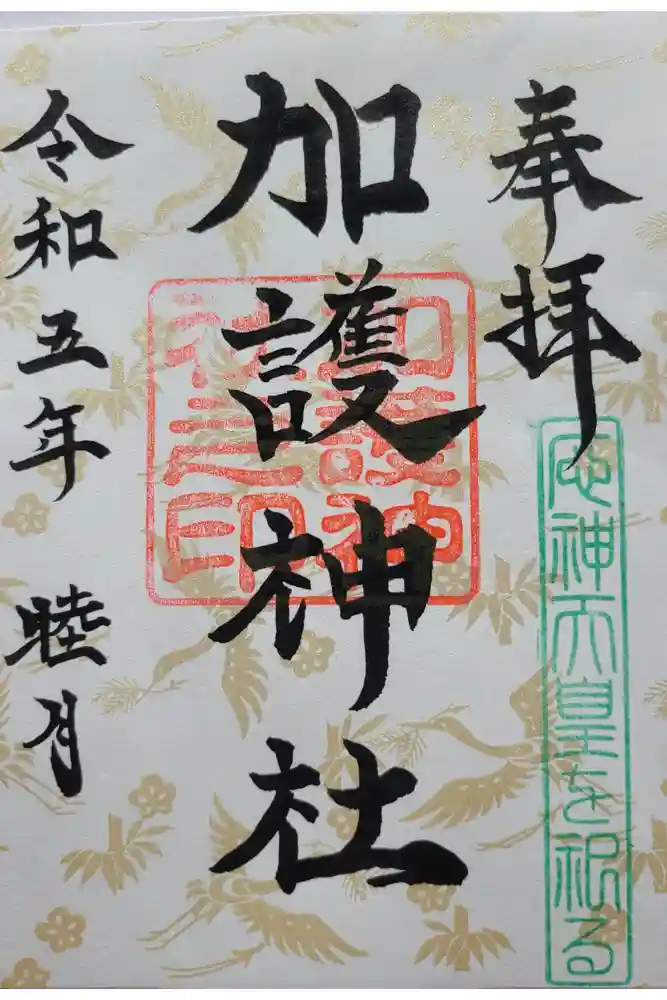 奉拝
應神天皇を祀る
加護神社
加護神社之印
令和五年 睦月